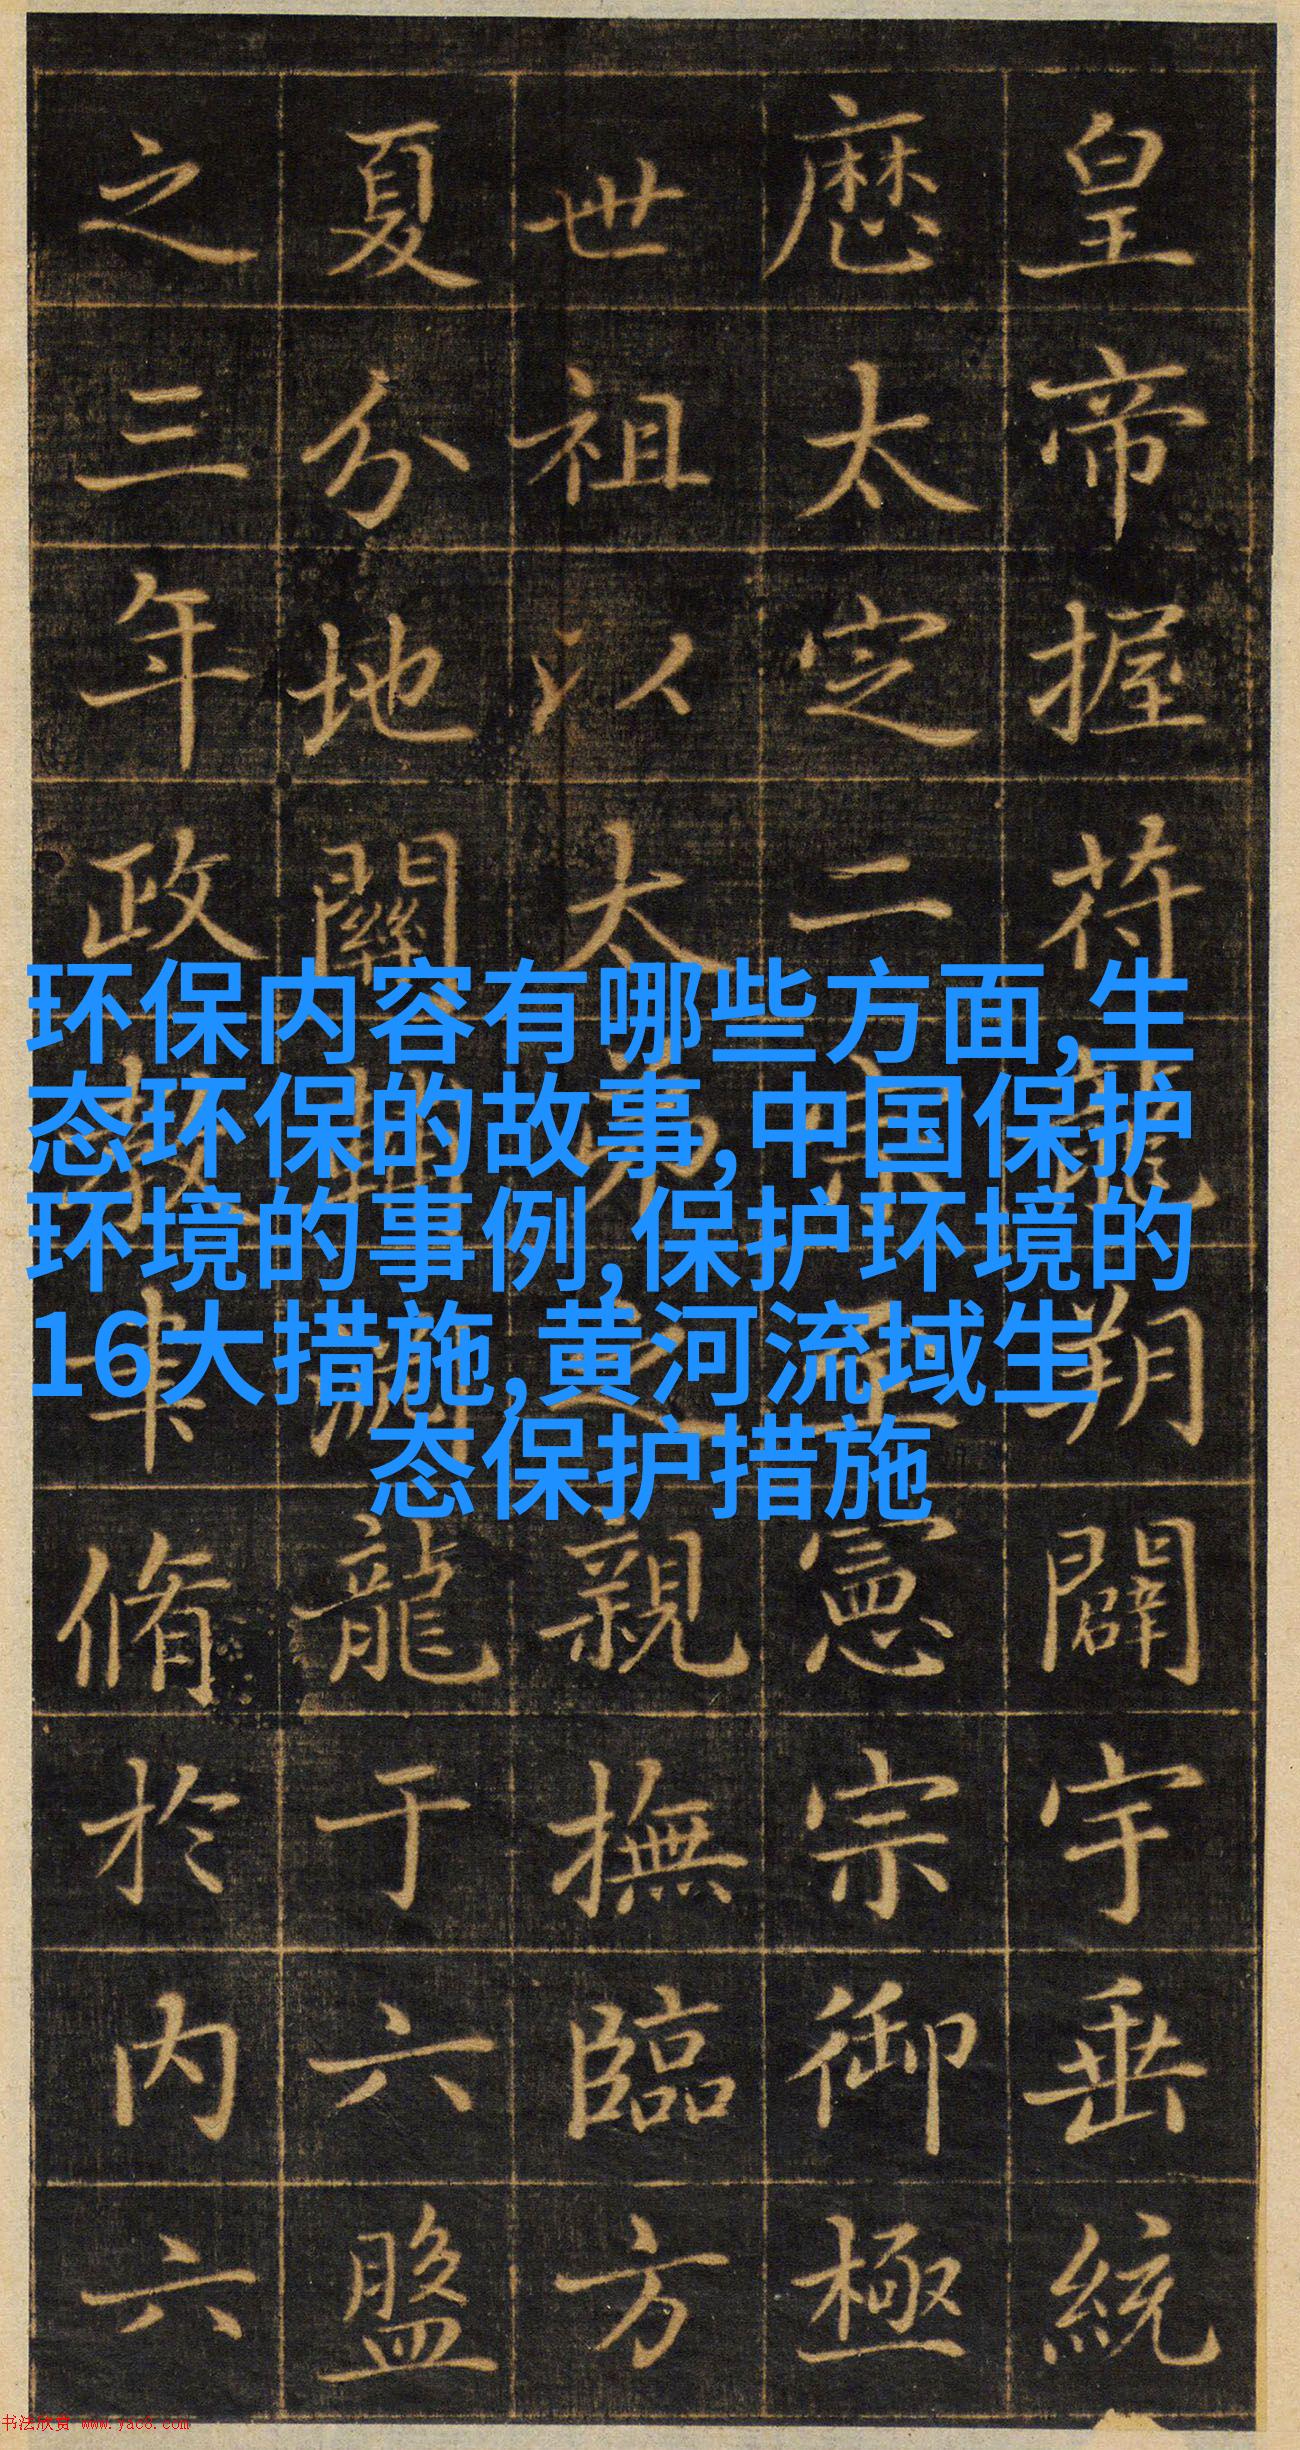 皇帝握苻龍朔闢宇垂統
厯太定二宗至憲宗御極
世祖以太弟之親撫臨方
夏分地關龍于六盤
之三年政教脩於内六
环保内容有哪些方面,生
态环保的故事,中国保护
环境的事例,保护环境的
16大措施,黄河流域生
态保护措施
书法欣赏 www.yac8.com